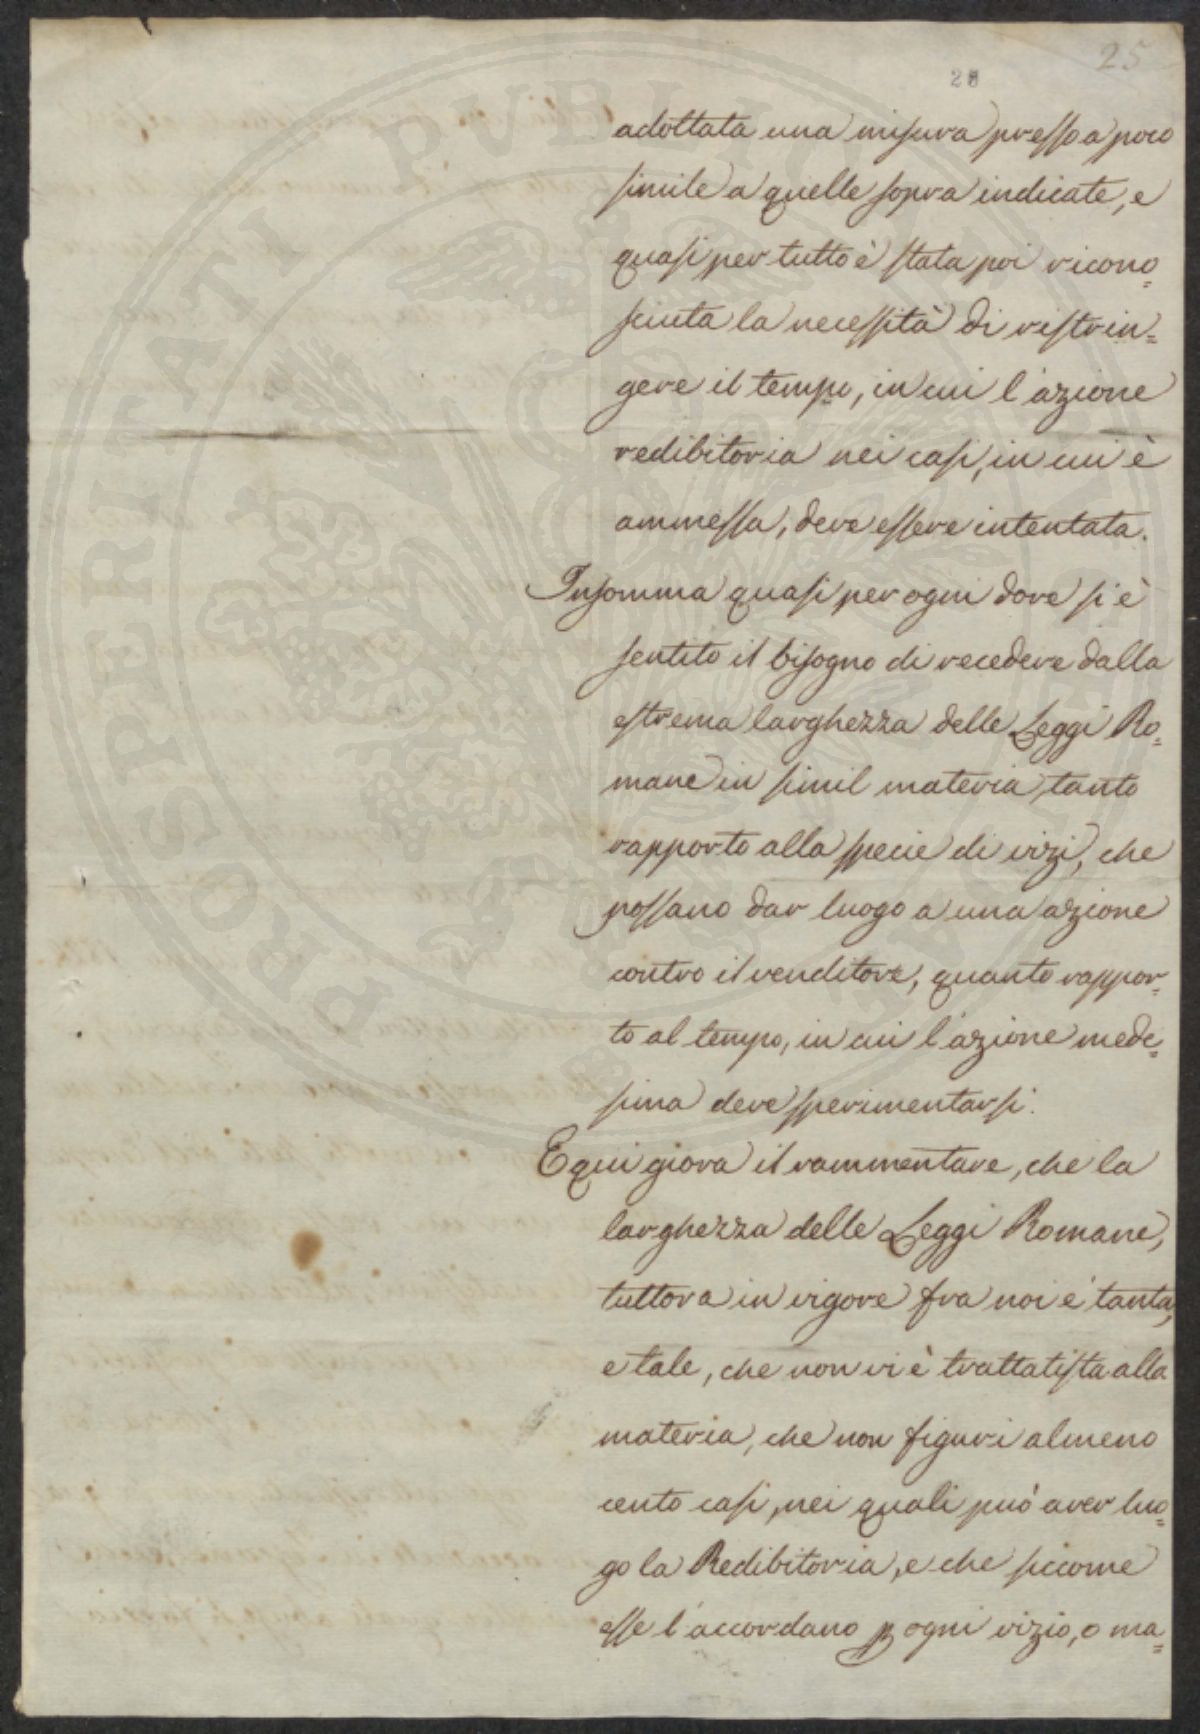 25
28
adottata una misura presso a poco
simile a quelle sopra indicate, e
quasi per tutto è stata poi ricono=
sciuta la necessità di ristrin=
gere il tempo, in cui l'azione
redibitoria nei casi, in cui è
ammessa, deve essere intentata.
Insomma quasi per ogni dove si è
sentito il bisogno di recedere dalla
estrema larghezza delle Leggi Ro=
mane in simil materia, tanto
rapporto alla specie di vizi, che
possano dar luogo a una azione
contro il venditore, quanto rappor=
to al tempo, in cui l'azione mede=
sima deve sperimentarsi.
E qui giova il rammentare, che la
larghezza delle Leggi Romane,
tuttora in vigore fra noi è tanta,
e tale, che non vi è trattatista alla
materia, che non figuri almeno
cento casi, nei quali può aver luo=
go la Redibitoria, e che siccome
esse l'accordano p ogni vizio, o ma=
PROSPERITATI PVBLICAE